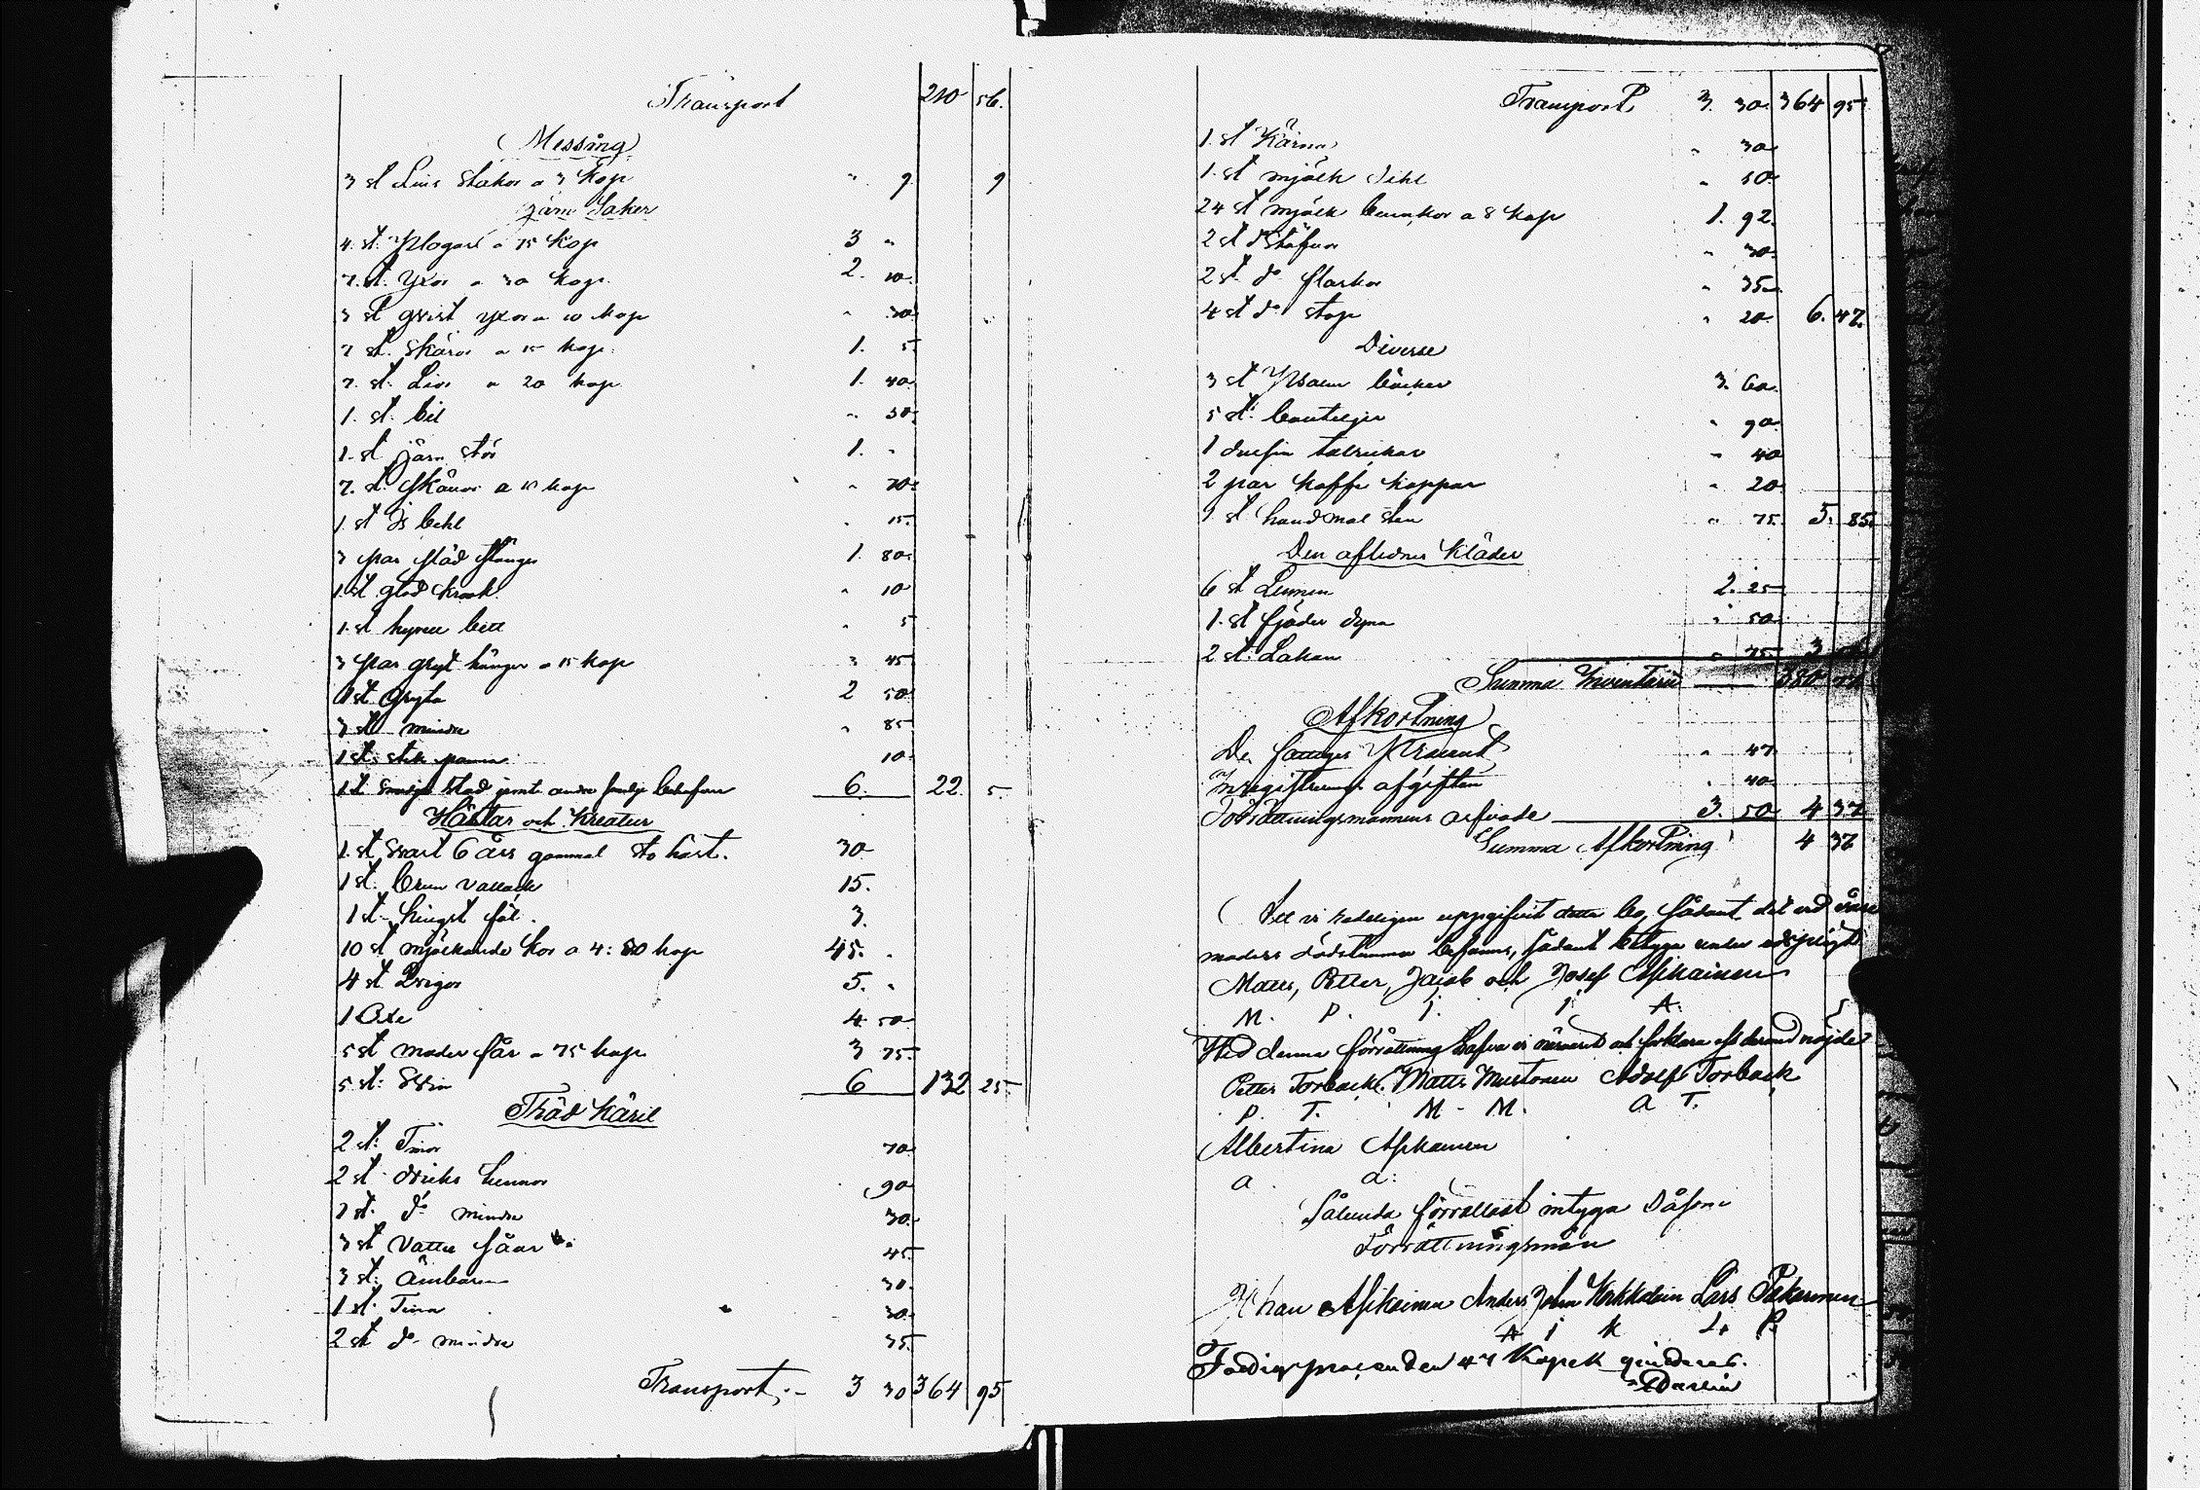 Transport 210 56.
Messing
3 st Lius stakor a 3 kop " 9. 9
Järn Saker
4. st. Plogar a 75 kop 3 "
7. st. Yxor a 30 kop. 2. 10
3 st qvist yxor a 10 kop " 30
7 st. Skäror a 15 kop. 1. 5
7. st. Liar a 20 kop 1. 40
1. st. bil " 50
1. st järn stör 1. "
7. st. a 10 kop " 70
1 st Is bihl " 15.
3 par stänger 1. 80
1. st glöd krook " 10
1. st hyvel bett " 5
3 par gryt hänger a 15 kop " 45
1 st Gryta 2 50
3 st mindre " 85
1 st: stek panna 10
1 st Smidje städ jemte andra 6. 22. 5.
Hästar och Kreatur
1. st Svart 6 års gammal sto häst. 30
1 st: brun vallack 15.
1 st hingst föl. 3.
10 st mjölkande kor a 4: 50 kop 45. "
4 st Qvigor 5. "
1 Oxe 4. 50
5 st moder får a 75 kop 3 75
5 st: Svin 6 132 25
Träd Käril
2 st: Tinor 70
2 st dricks tunnor 90
1 st. do mindre 30
3 st vatten såar 45
3 st. Ämbaren 30.
1 st Tina 30
2 st do mindre 35
Transport 3 30 364 95
Transport 3. 30 364 95
1. st Kärna " 30
1. st mjölk " 10
24 st mjölk bunkor a 8 kop 1. 92
2 st Stäfvor " 30
2 st. do flaskor " 35
4 st do stop " 20 6. 47.
Diverse
3 st Psalm böcker 3. 60
5 st: bouteljer " 90
1 dusin talrickar " 40
2 par kaffe koppar " 20
1 st hand mal sten " 75. 5. 85
Den aflednes Kläder
6 st Linnen 2. 25
1. st fjäder dyna " 50
2 st. Lakan " 75 3
Summa Inventarie 380
Afkortning
De fattiges Procent " 47
Inregistrerings afgiften " 40
Förrättningsmannens arfvode 3. 50 4 37
Summa Afkortning 4 37
Att vi redeligen uppgifvit detta bo, sådant det vid våra
moders dödstimma befanns, sådant betyga under edspligt
Matts, Petter, Jacob och Josef Asikainen
M. P. J. J. A.
Wid denna förrättning hafva vi närvarit och förklara oss dermed nöjde
Petter Torback. Matts Mustonen Adolf Torback
P. T. M. M. A T.
Albertina Asikainen
a. a.
Sålunda förrättadt intyga Såsom
Förrättningsmän
Johan Asikainen Anders John Kokkolain Lars Pakarinen
A J K L. P.
Fattigprocenden 47 Kopek qvitteras.